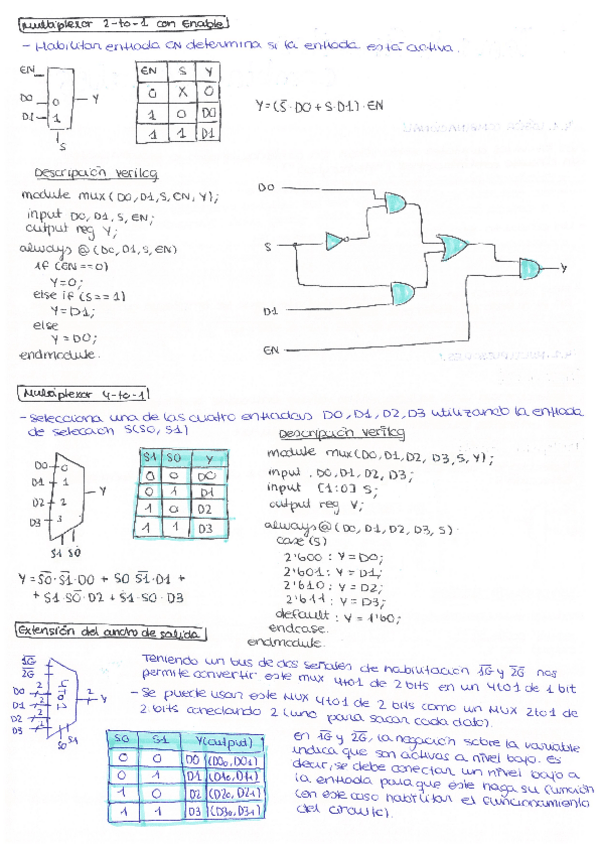 Multiplexor 2-to-1 con Enable
- Habilitar entrada EN determina si la entrada está activa.
EN
D0
D1
0
1
S
Y
EN S Y
0 X 0
1 0 D0
1 1 D1
Y=(S̅·D0+S·D1)·EN
Descripción verilog
module mux(D0,D1,S,EN,Y);
input D0,D1,S,EN;
output reg Y;
always @(D0,D1,S,EN)
if (EN==0)
Y=0;
else if (S==1)
Y=D1;
else
Y=D0;
endmodule.
D0
S
D1
EN
Y
Multiplexor 4-to-1
- Selecciona una de las cuatro entradas D0,D1,D2,D3 utilizando la entrada
de selección S(S0,S1)
D0 0
D1 1
D2 2
D3 3
S1 S0
Y
S1 S0 Y
0 0 D0
0 1 D1
1 0 D2
1 1 D3
Y=S̅0̅·S̅1̅·D0 + S0 S̅1̅·D1 +
+ S1 S̅0̅·D2 + S1·S0·D3
Descripción verilog
module mux(D0,D1,D2,D3,S,Y);
input D0,D1,D2,D3;
input [1:0] S;
output reg Y;
always@(D0,D1,D2,D3,S)
case(S)
2'b00: Y=D0;
2'b01: Y=D1;
2'b10: Y=D2;
2'b11: Y=D3;
default: Y=1'b0;
endcase.
endmodule.
Extensión del ancho de salida
1̅G̅
2̅G̅
D0 2
D1 2
D2 2
D3 2
4TO1
S0 S1
2 Y
Teniendo un bus de dos señales de habilitación 1̅G̅ y 2̅G̅ nos
permite convertir este mux 4to1 de 2 bits en un 4to1 de 1 bit
- Se puede usar este MUX 4to1 de 2 bits como un MUX 2to1 de
2 bits conectando 2 (uno para sacar cada dato).
S0 S1 Y(output)
0 0 D0 (D00,D01)
0 1 D1 (D10,D11)
1 0 D2 (D20,D21)
1 1 D3 (D30,D31)
en 1̅G̅ y 2̅G̅, la negación sobre la variable
indica que son activas a nivel bajo. es
decir, se debe conectar un nivel bajo a
la entrada para que este haga su función
(en este caso habilitar el funcionamiento
del circuito).